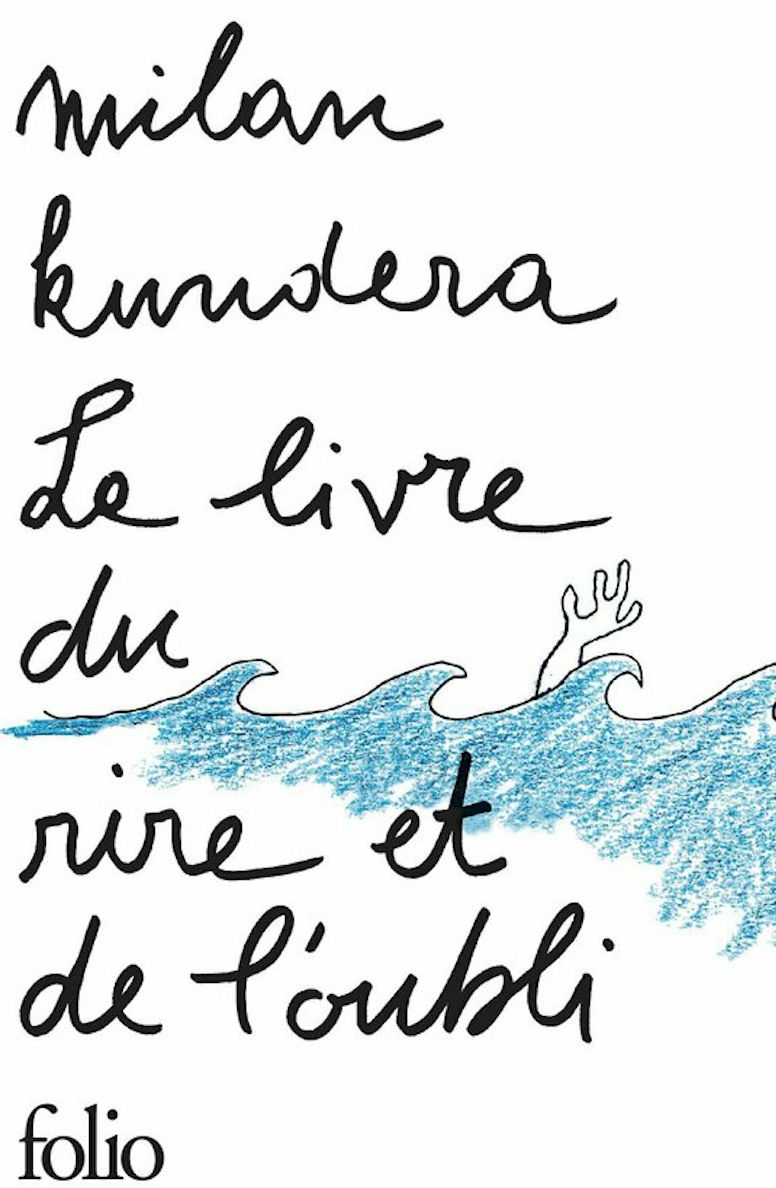 milan
kundera
Le livre
du
rire et
de l'oubli
folio